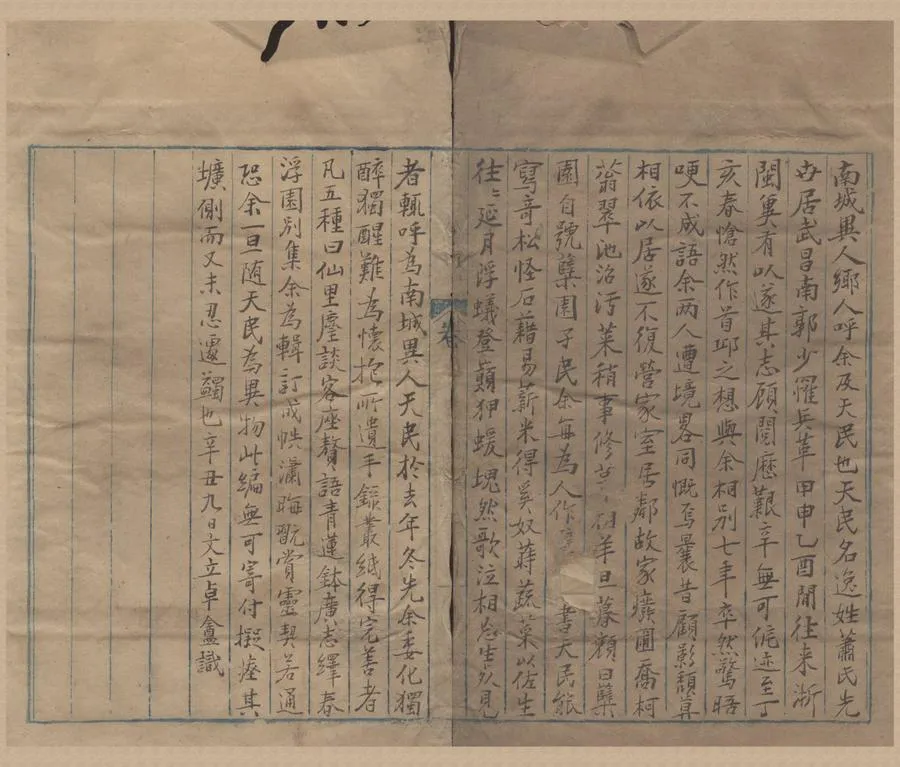 南城異人鄉人呼余及天民也天民名逸姓蕭氏先
世居武昌南郭少罹兵革甲申乙酉間往来浙
閩兾有以遂其志顧閱歷艱辛無可㑌迹至丁
亥春愴然作首邱之想與余相别七年卒然驚晤
哽不成語余两人遭境畧同慨焉曩昔顧影頽算
相依以居遂不復營家室居鄰故家癈圃喬柯
蓊翠池沼污萊稍事修羊旦暮頮日
園自號櫱園子民余每為人作書天民能
寫竒松怪石藉易薪米得奚奴蒔蔬菓以佐生
往〻延月浮蟻登巔狎蝯塊然歌泣相忘生久見
卷
者輒呼為南城異人天民於去年冬先余委化獨
醉獨醒難為懷抱所遺手錄叢紙得完善者
凡五種曰仙里麈談客座贅語青蓮鉢廣志繹春
浮園别集余為輯訂成帙瀟晦翫賞靈契若通
恐余一旦随天民為異物此編無可寄付擬瘞其
壙側而又未忍遽蠲也辛丑九日文立卓盦識